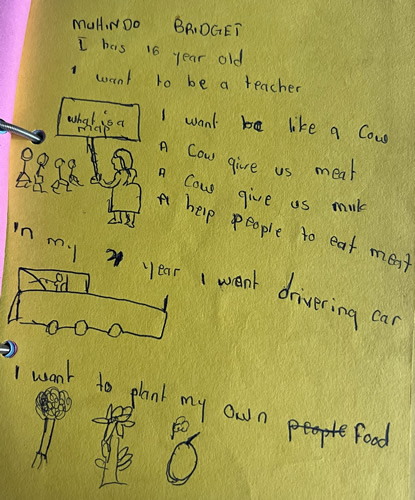 MUHINDO BRIDGET
I has 16 year old
I want to be a teacher
what is a
map
I want be like a Cow
A Cow give us meat
A Cow give us milk
A help people to eat meat
In my year I want drivering car
I want to plant my own people food